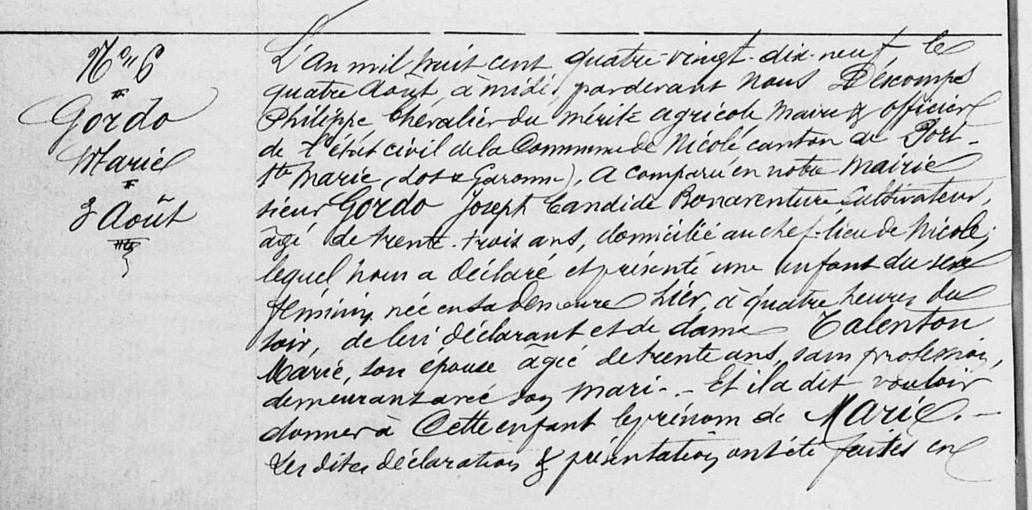 N° 6
Gordo
Marie
3 Août
L'an mil huit cent quatre-vingt-dix-neuf le
quatre Août à midi, pardevant Nous Descomps
Philippe Chevalier du mérite agricole Maire & officier
de l'état civil de la Commune de Nicole canton de Port-
Ste Marie, (Lot & Garonne), a comparu en notre Mairie
sieur Gordo Joseph Candide Bonaventure Cultivateur,
âgé de trente-trois ans, domicilié au chef-lieu de Nicole;
lequel nous a déclaré et présenté une enfant du sexe
féminin, née en sa demeure hier, à quatre heures du
soir, de lui déclarant et de dame Talenton
Marie, son épouse agée de trente ans, sans profession,
demeurant avec son mari. - Et il a dit vouloir
donner à Cette enfant le prénom de Marie. -
Les dites déclaration & présentation ont été faites en